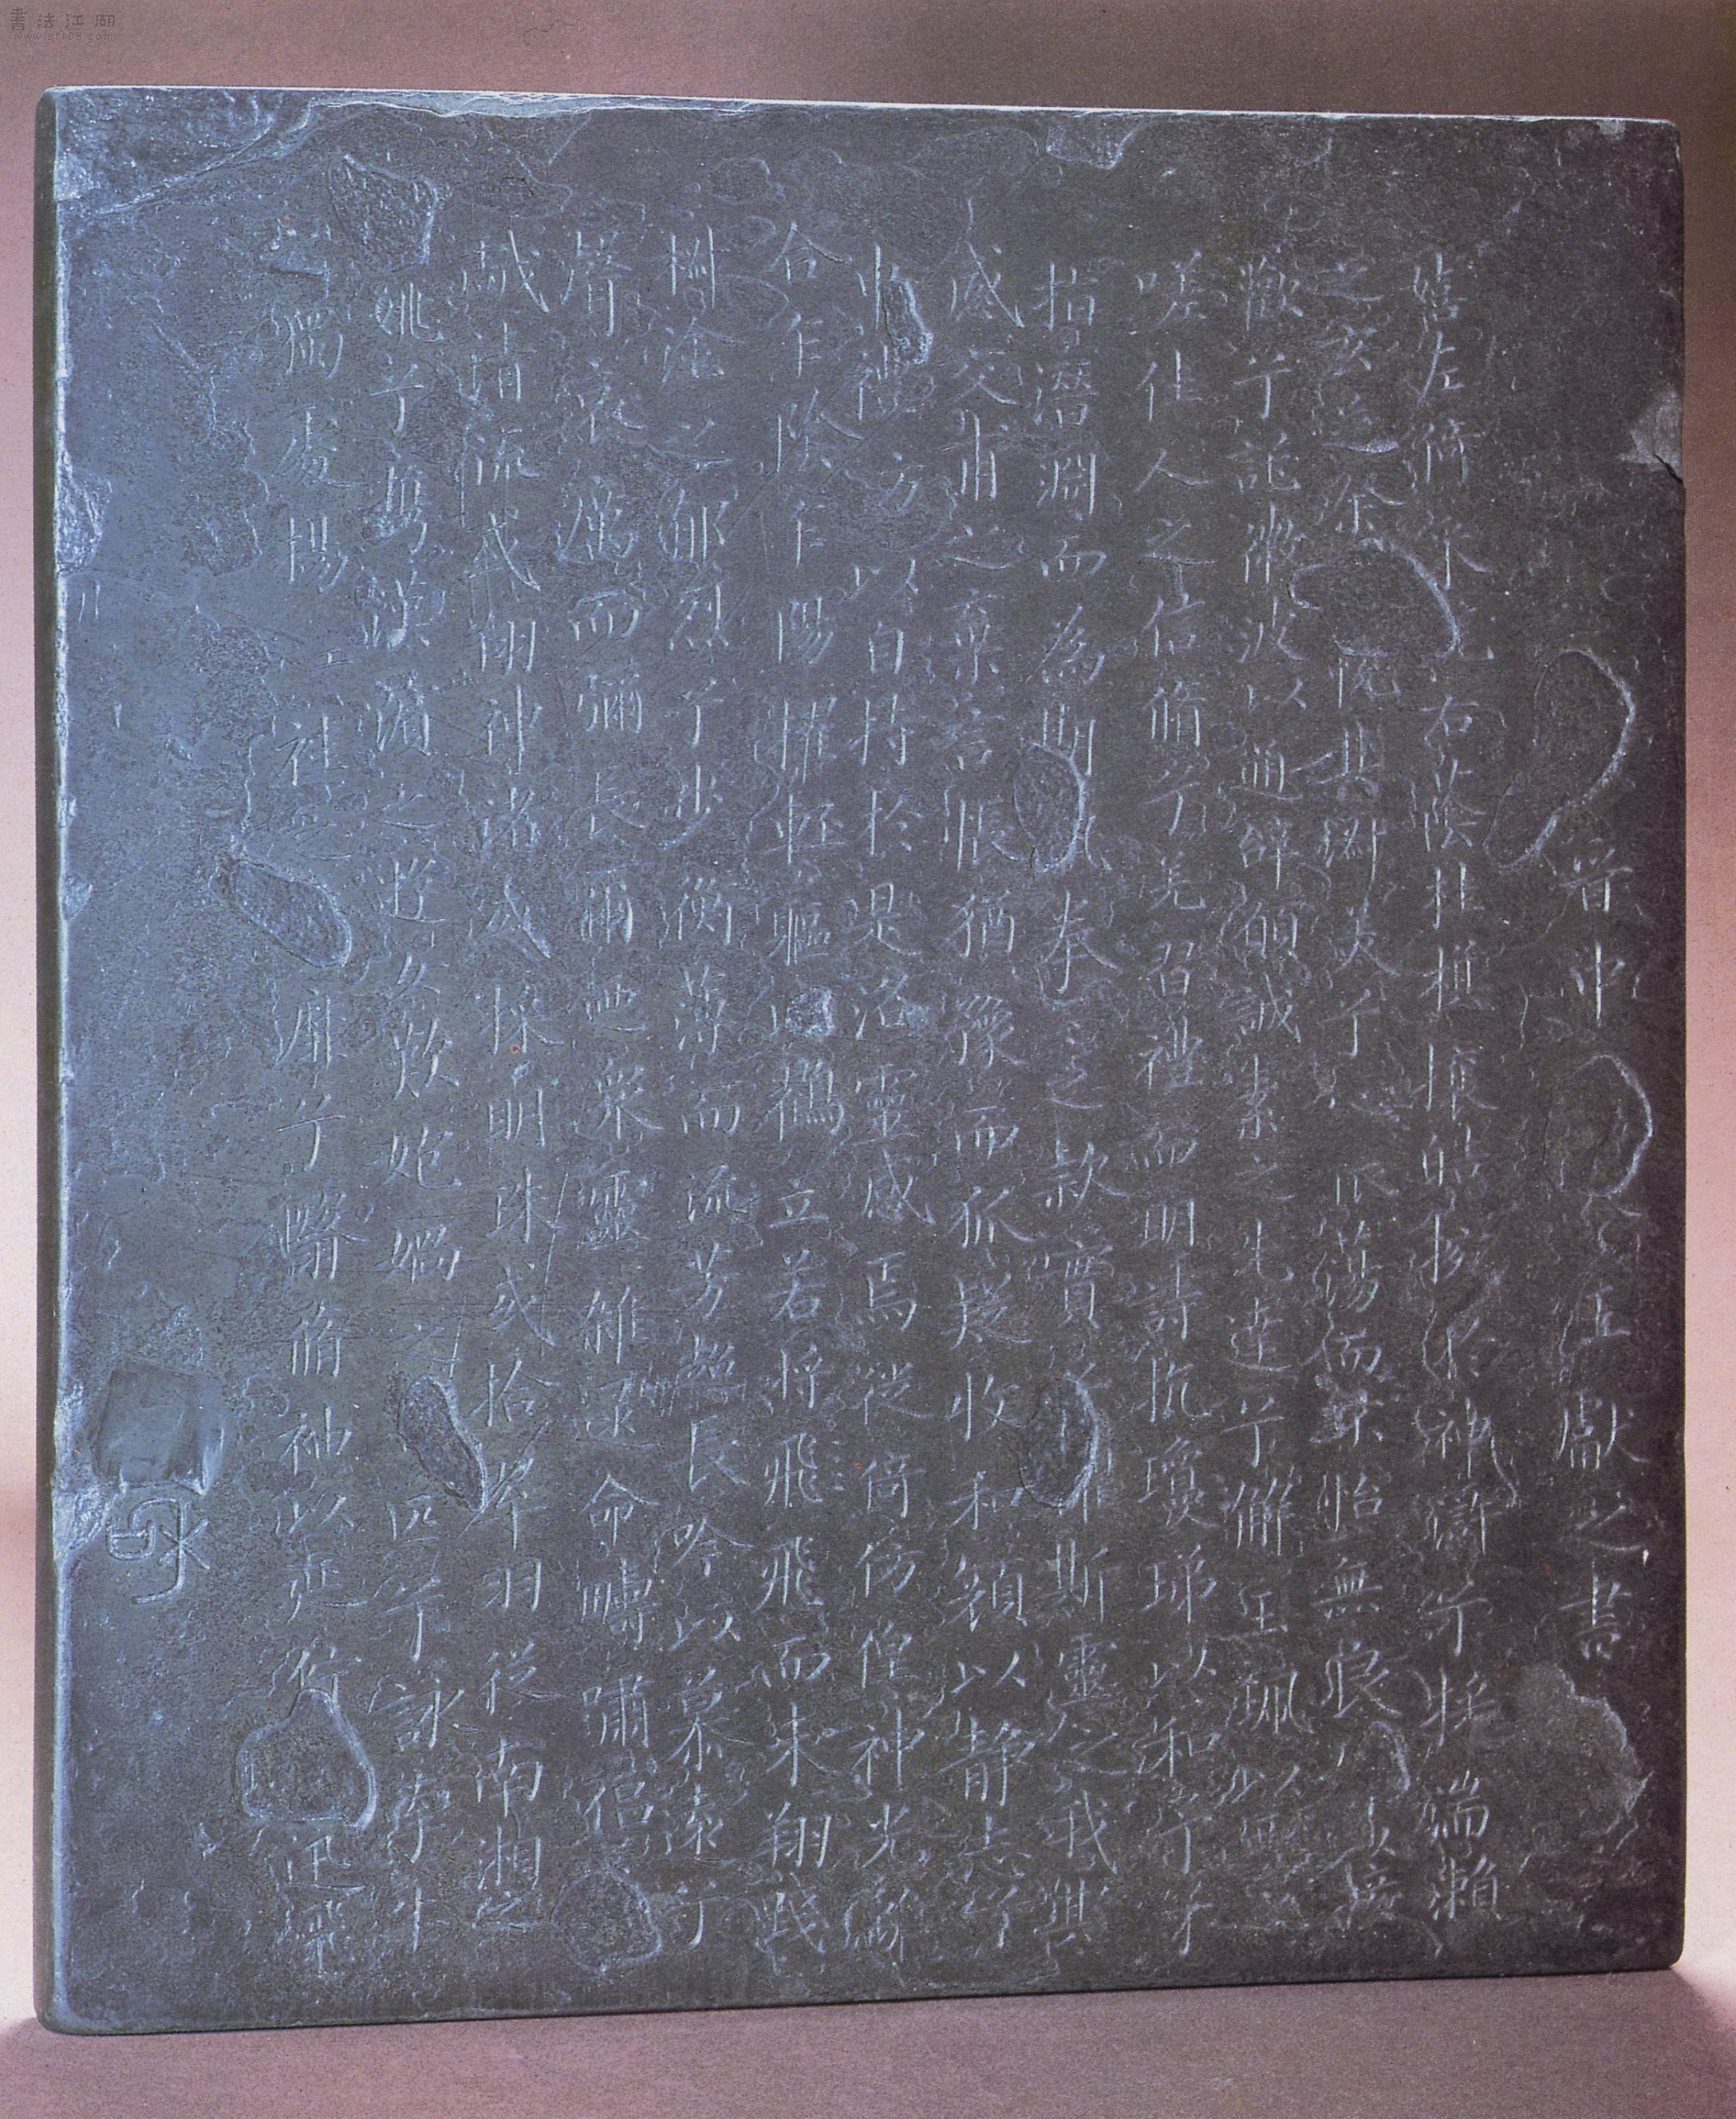 晋中
王獻之書
嬉左倚采旄右蔭桂旗攘皓捥於神滸兮採湍瀨
之玄芝余
悅其淑美兮心
振蕩而不怡無良
以接
歡兮託微波以通辭願誠素之先達兮解玉珮以
嗟佳人之信脩兮羌習禮而明詩抗瓊珶以和予兮
指潛淵而為期
執拳之之款實兮
斯靈之我
感交甫之棄言悵猶豫而狐疑收和顏以静志兮
申禮
方以自持於是洛靈感焉徙倚傍偟神光離
合乍陰乍陽
輕軀以鶴立若將飛飛而未翔踐
椒塗之郁烈兮步蘅薄而流芳超長吟以慕遠兮
聲哀厲而彌長爾迺眾靈雜遝命疇嘯
戲清流或翔神渚或採明珠或拾翠羽從南湘之
姚兮携漢濱之遊女歎
媧之
匹兮詠牽牛
獨處揚
袿
靡兮翳脩袖以延佇
迅飛
永
書法江湖
www.sf108.com